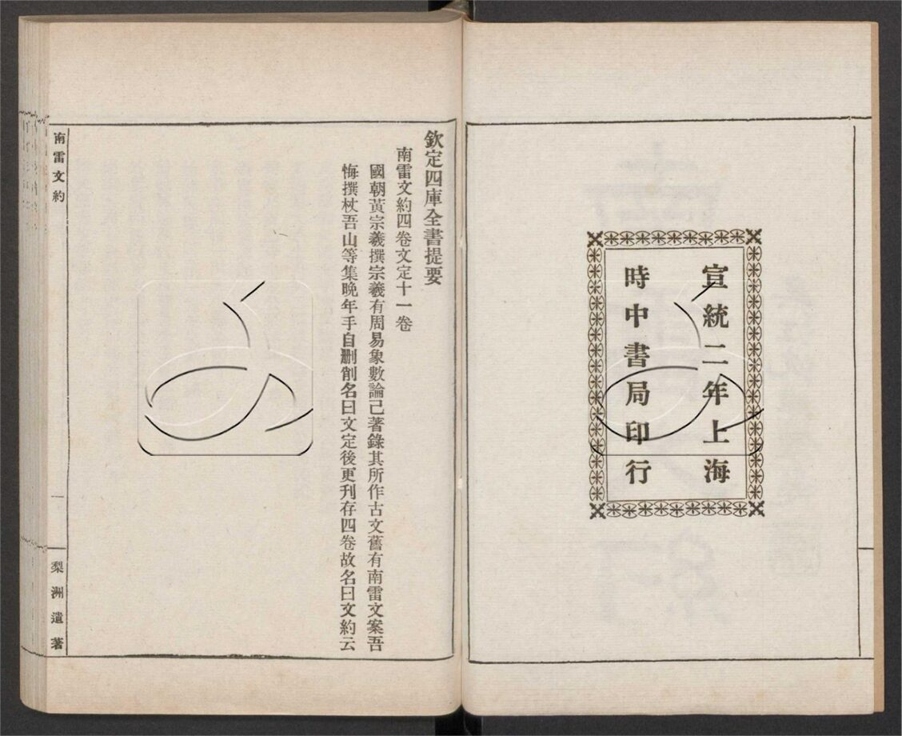 宣統二年上海
時中書局印行
欽定四庫全書提要
南雷文約四卷文定十一卷
國朝黃宗羲撰宗羲有周易象數論已著錄其所作古文舊有南雷文案吾
悔撰杖吾山等集晚年手自刪削名曰文定後更刋存四卷故名曰文約云
南雷文約
一
梨洲遺著